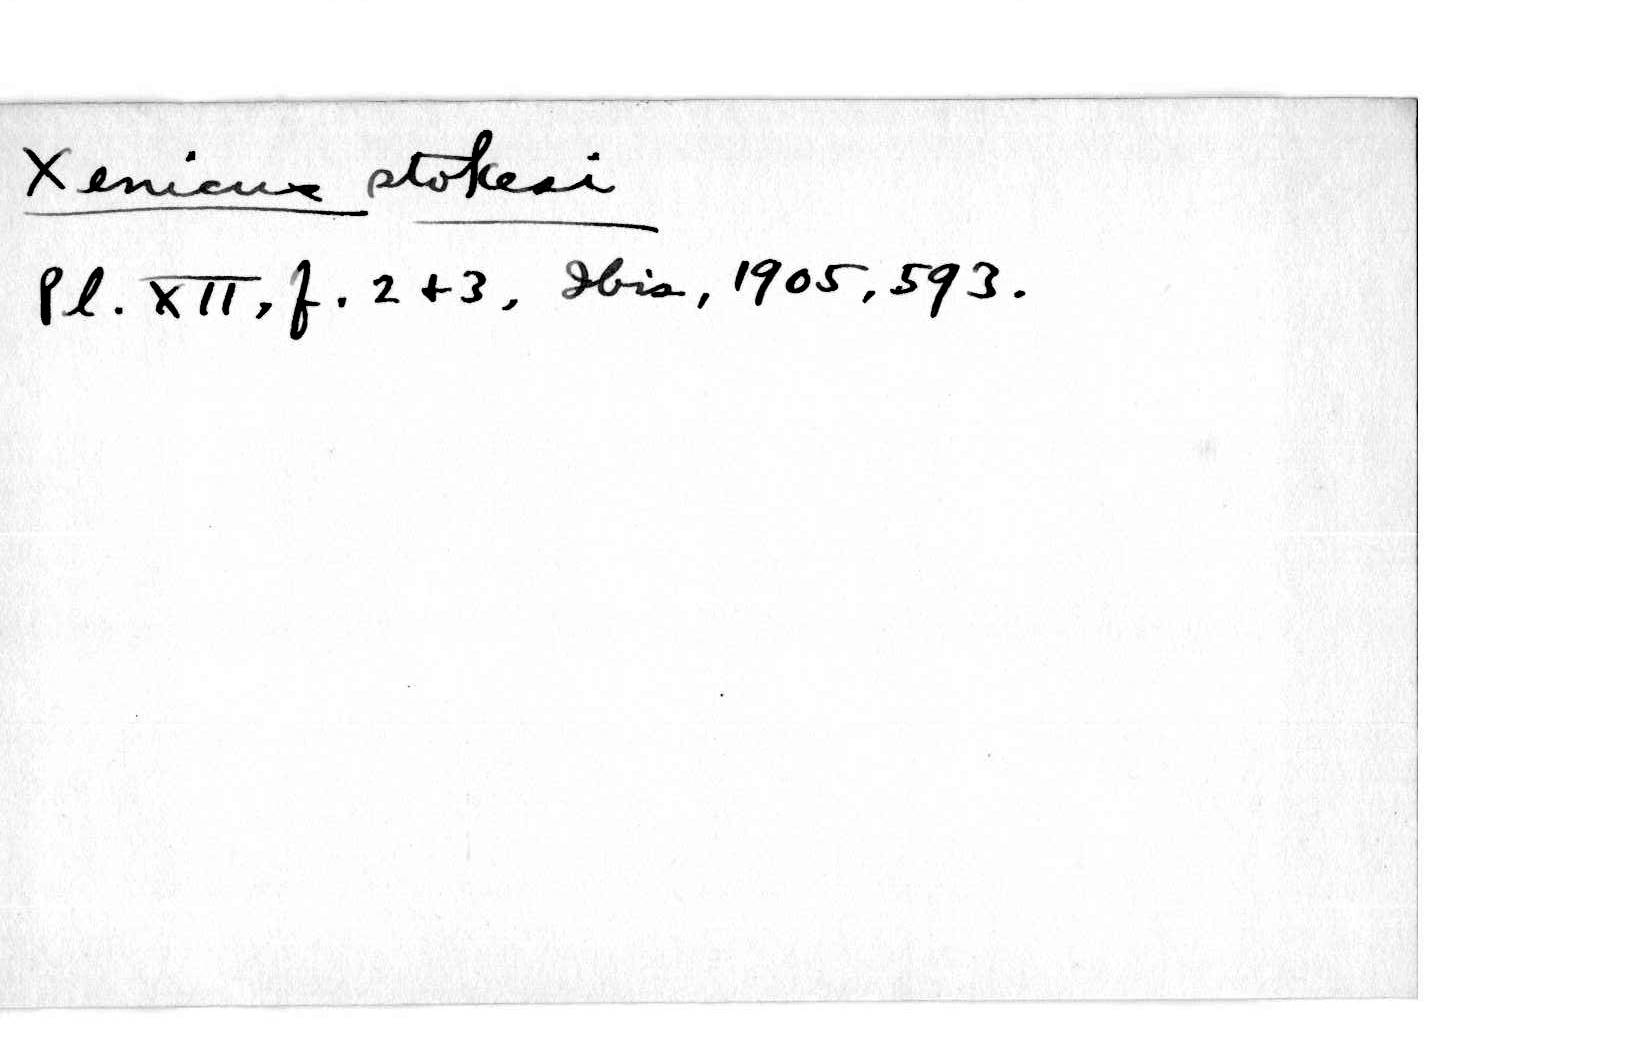 Xenicus stokesi
Pl. XII, f. 2+3, Ibis, 1905, 593.